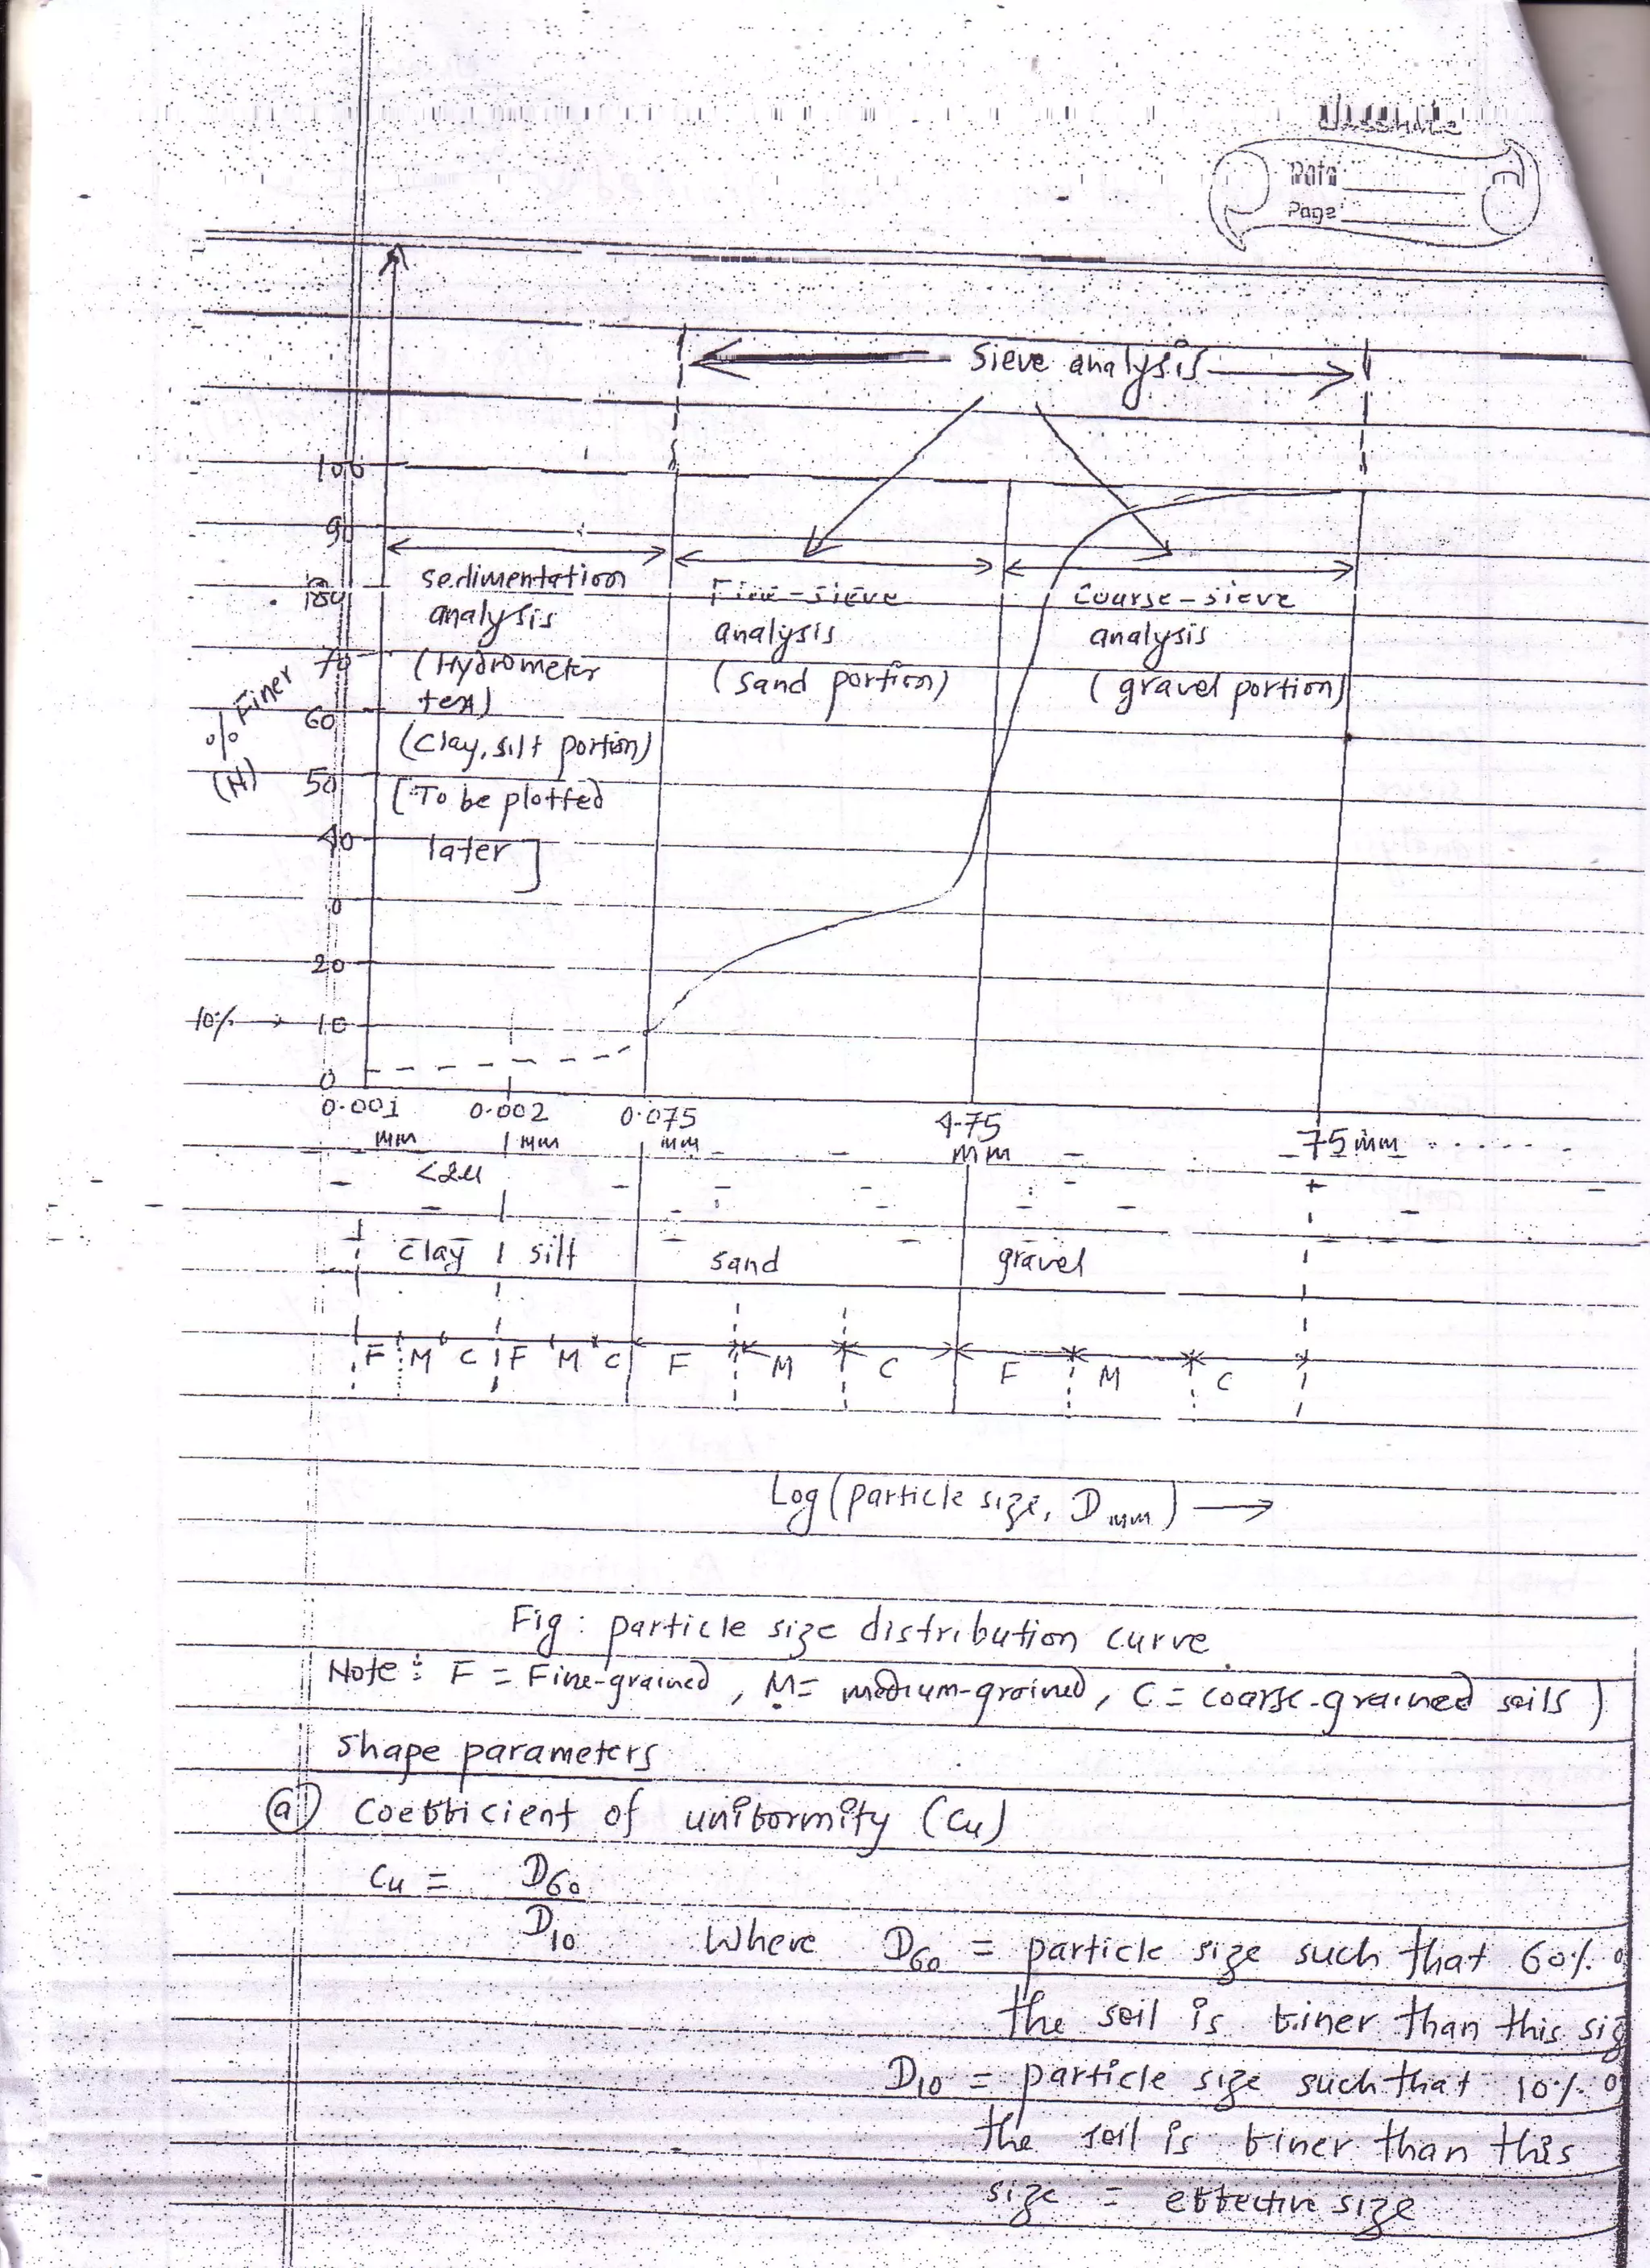 classmate
Date
Page
Sieve analysis
100
90
80
70
60
50
40
20
10% → 10
0
% Finer
(N)
sedimentation
analysis
(Hydrometer
test)
(Clay, silt portion)
[To be plotted
later]
Fine-sieve
analysis
(sand portion)
Course-sieve
analysis
(gravel portion)
0.001 0.002 0.075 4.75 75 mm
mm mm mm mm
<2μ
clay silt sand gravel
F M C F M C F M C F M C
Log (particle size, D mm) →
Fig: particle size distribution curve
Note: F = Fine-grained, M= medium-grained, C = coarse-grained soils)
Shape parameters
(a) Coefficient of uniformity (Cu)
Cu = D60
D10 Where D60 = particle size such that 60%
the soil is finer than this
D10 = particle size such that 10%
the soil is finer than this
size = effective size